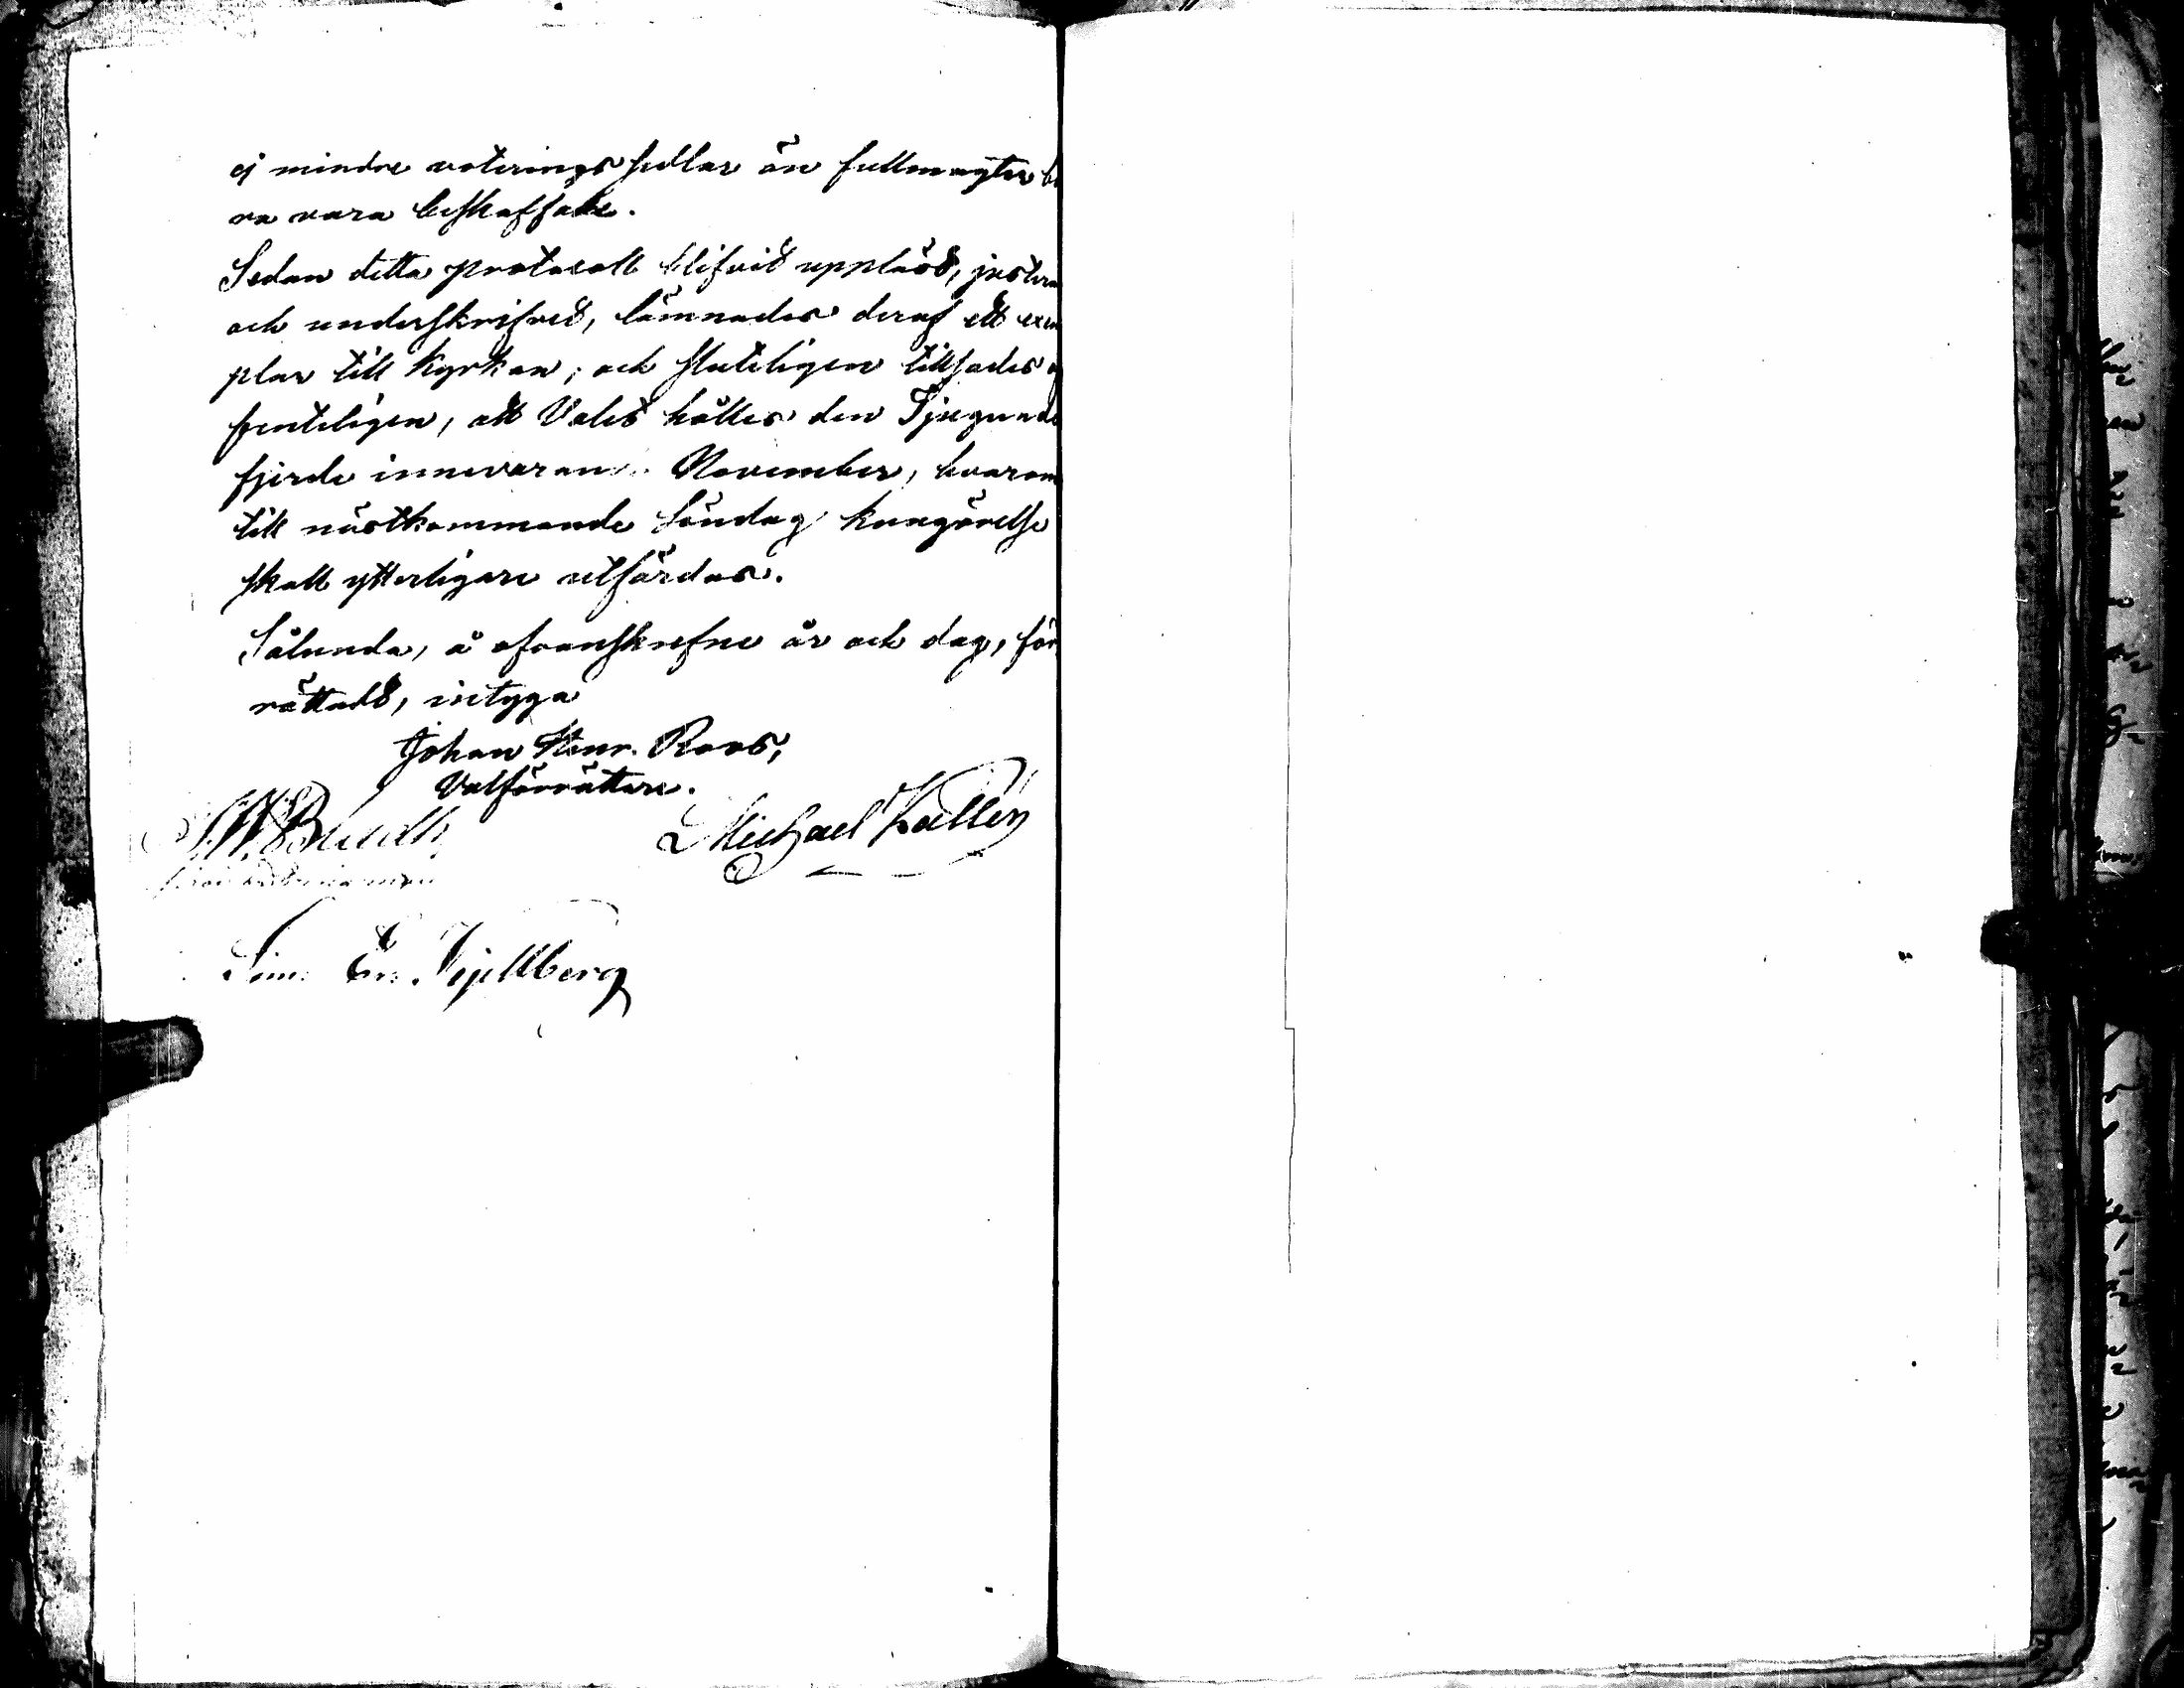 ej mindre voteringssedlar än fullmagter b
ra vara beskaffade.
Sedan detta protocoll blifvit uppläst, juster
och underskrifvet, lämnades deraf ett exem
plar till Kyrkan; och sluteligen tillsades o
fenteligen, att Valet hålles den Tjugunde
fjerde innevarande November, hvarom
till nästkommande Söndag kungörelse
skall ytterligare utfärdas.
Sålunda, å ofvanskrefne år och dag, för
rättadt, intyga
Johan Henr. Roos,
Valförrättare.
Michael Kallén
Sim. Er. Kjellberg